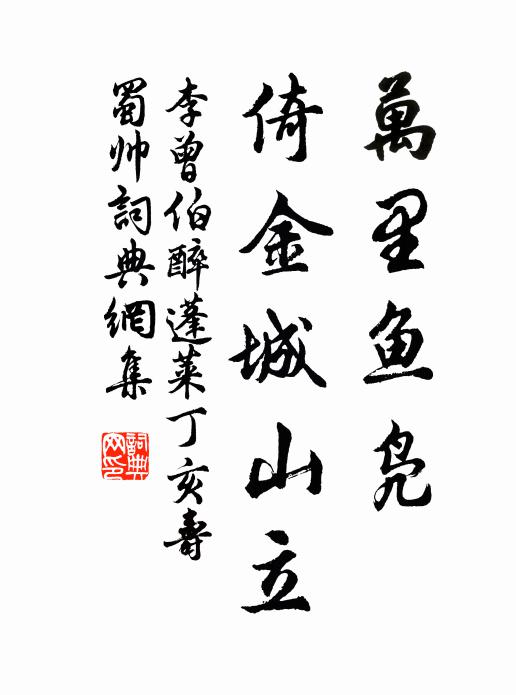 萬里鱼凫
倚金城山立
李曾伯醉蓬莱丁亥壽
蜀帅詞典網集
詞典網印